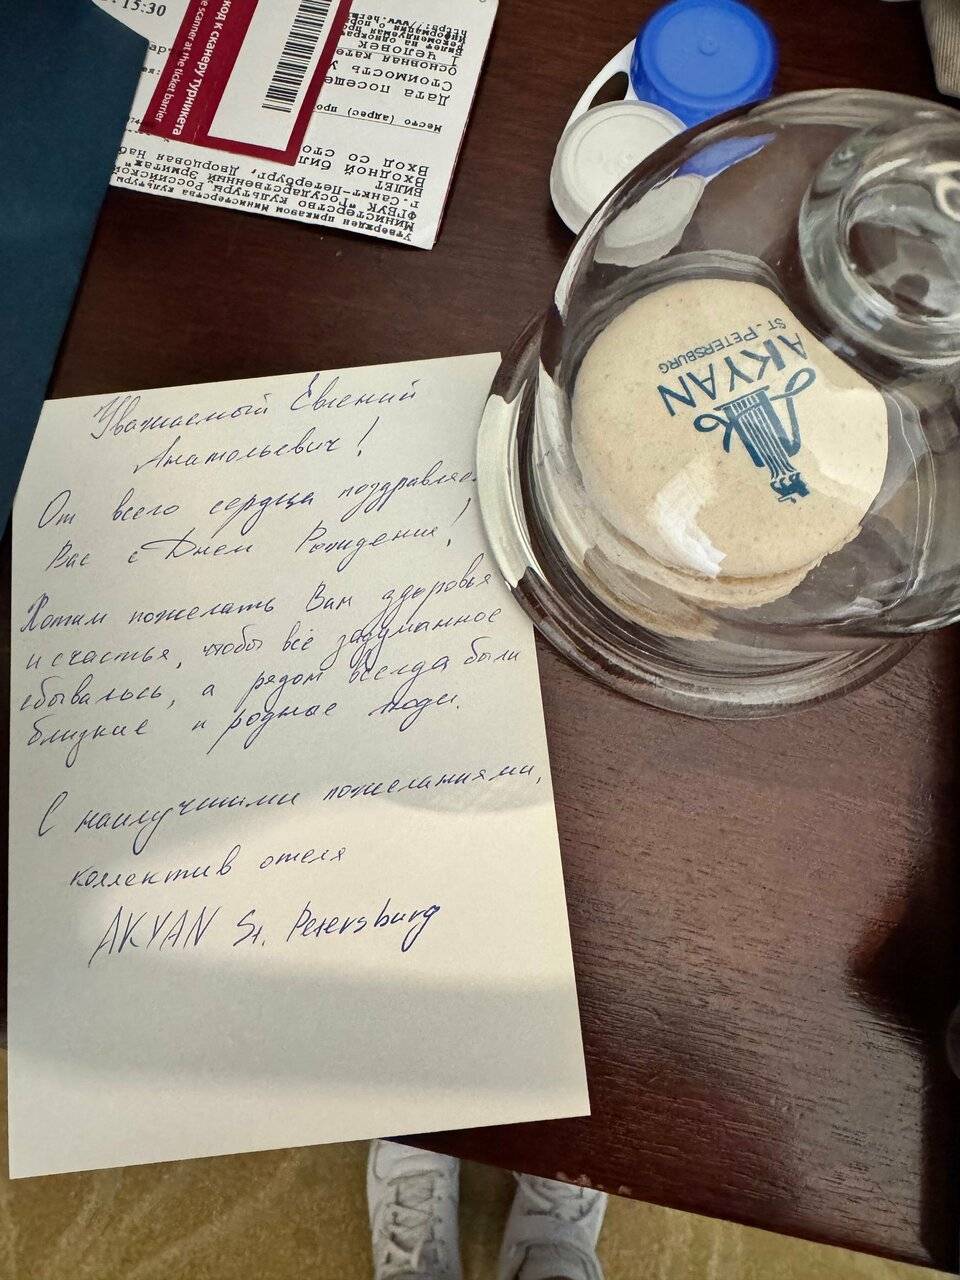 15:30
код к сканеру турникета
e scanner at the ticket barrier
Утвержден приказом Министерства культуры
Министерство культуры Российской
ФГБУК "Государственный Эрмитаж"
г. Санкт-Петербург, Дворцовая наб
БИЛЕТ
Входной бил
Вход со сто
Место (адрес) про
Дата посеще
Стоимость у
Основная кате
1 человек
AKYAN
ST. PETERSBURG
Уважаемый Евгений
Анатольевич!
От всего сердца поздравляе
Вас с Днем Рождения!
Хотим пожелать Вам здоровья
и счастья, чтобы всё задуманное
сбывалось, а рядом всегда были
близкие и родные люди.
С наилучшими пожеланиями,
коллектив отеля
AKYAN St. Petersburg